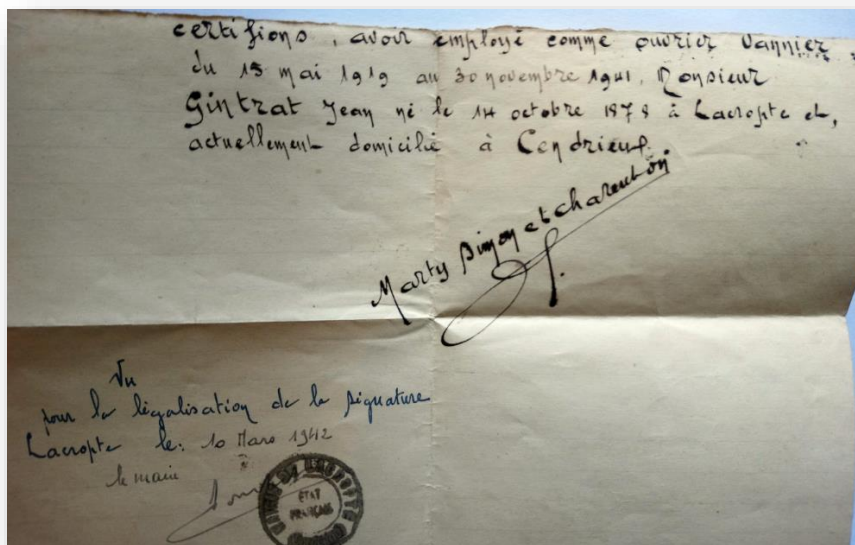 certifions, avoir employé comme ouvrier vannier
du 15 mai 1919 au 30 novembre 1941, Monsieur
Gintrat Jean né le 14 octobre 1878 à Lacropte et,
actuellement domicilié à Cendrieux.
Marty Simon et Charenton
Vu
pour la légalisation de la signature
Lacropte le: 10 Mars 1942
le maire
MAIRIE DE LACROPTE
ETAT
FRANÇAIS